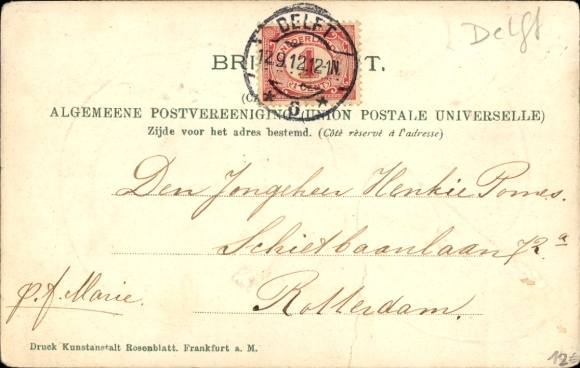 Delft
DELFT
12.9.12.12-1N
NEDERLAND
1
CENT
6
ALGEMEENE POSTVEREENIGING (UNION POSTALE UNIVERSELLE)
Zijde voor het adres bestemd. (Côté rèservè á l'adresse)
Den Jongeheer Henkie Pomes.
Schietbaanlaan 72 a
p.f. Marie.
Rotterdam.
Druck Kunstanstalt Rosenblatt. Frankfurt a. M.
12€